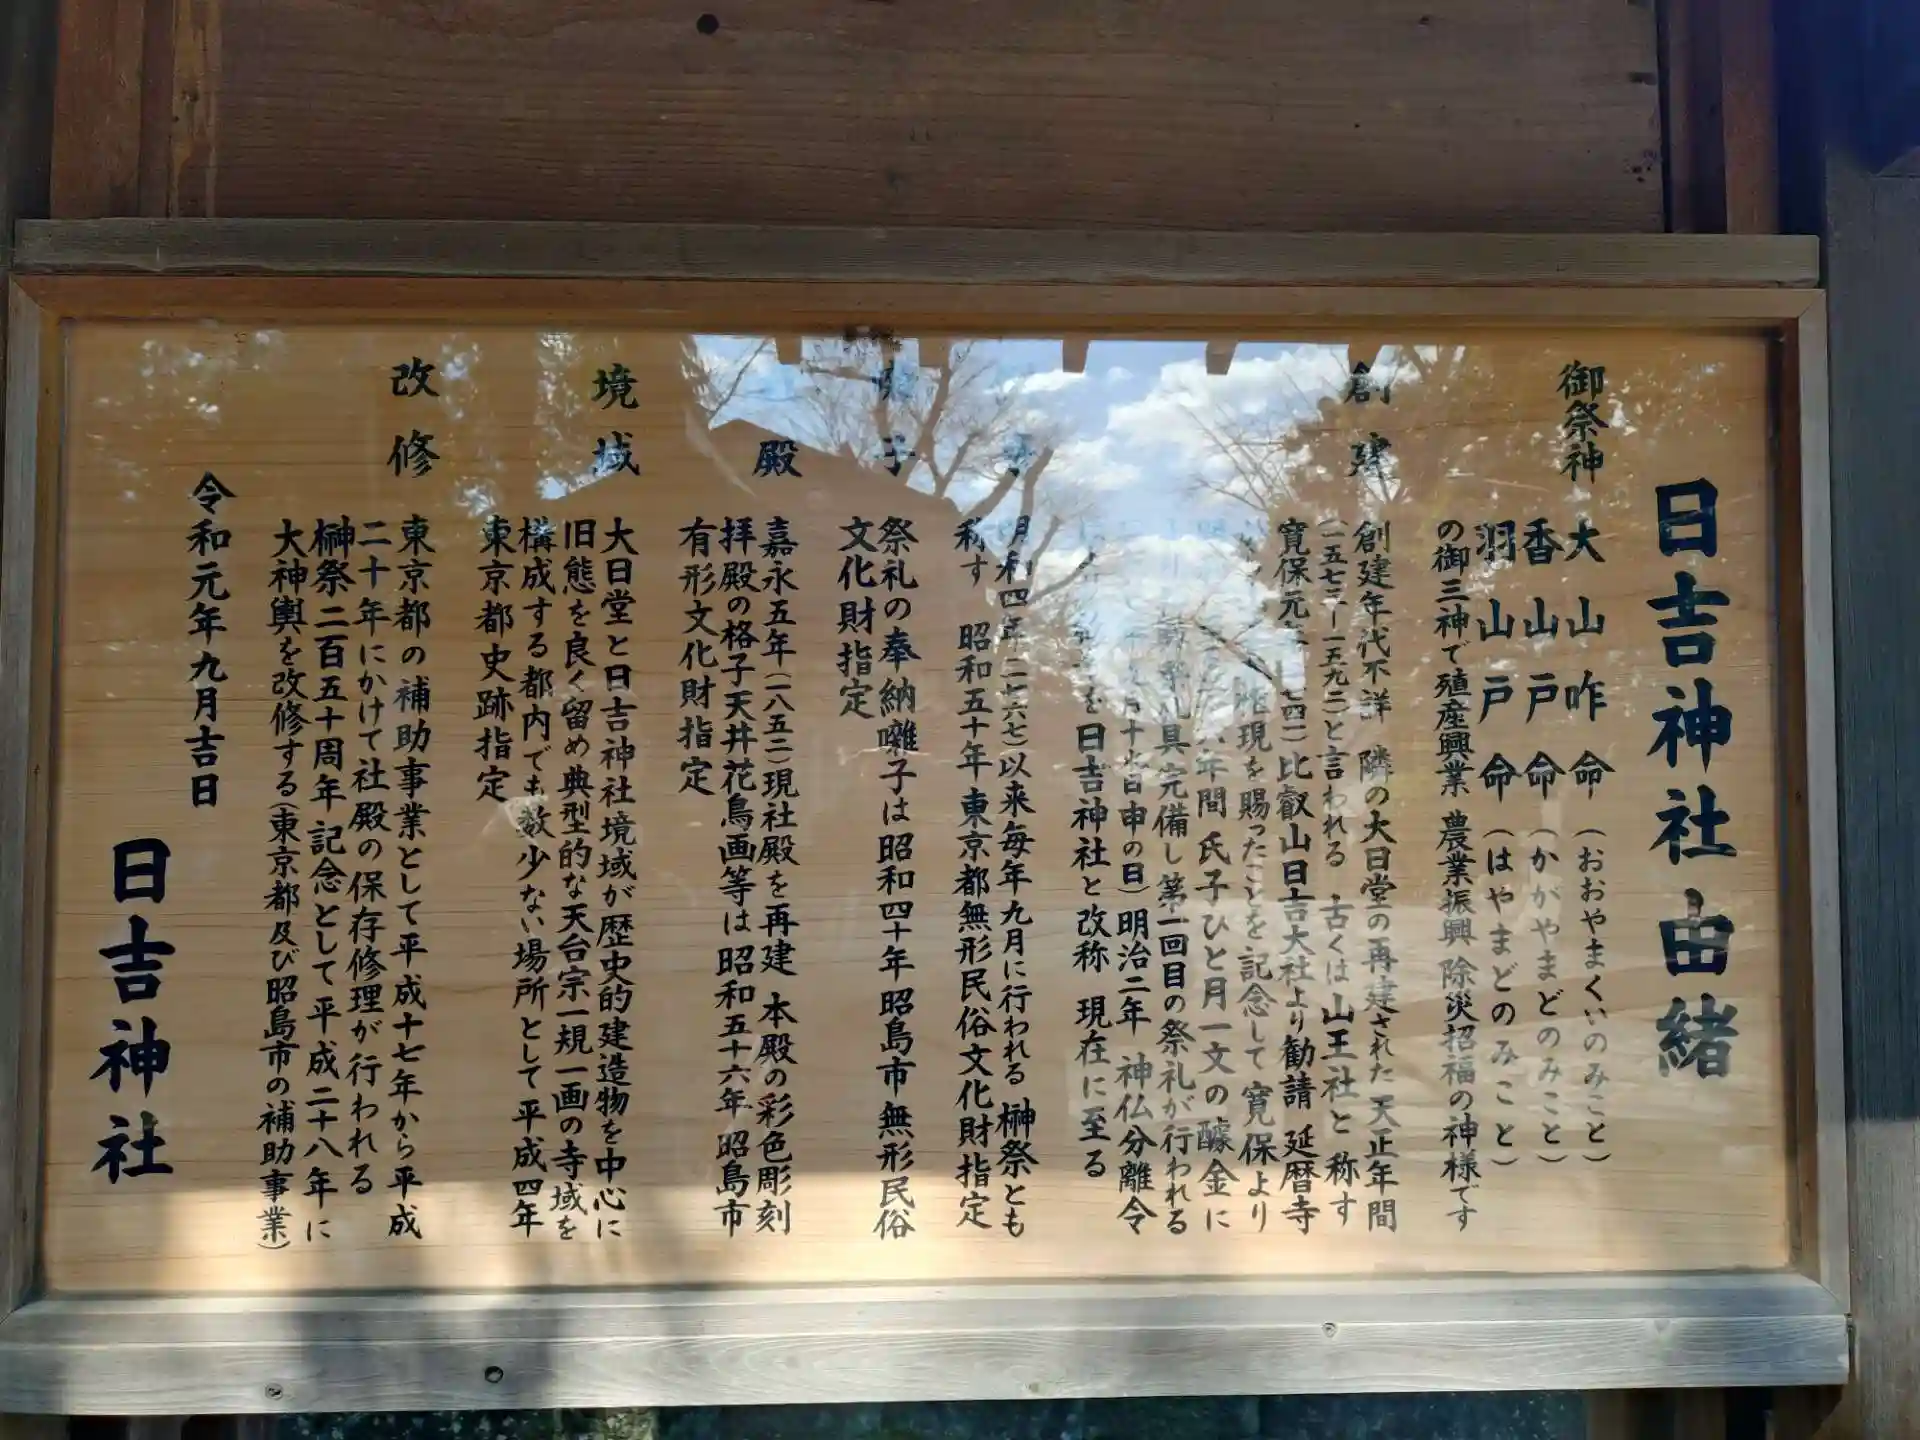 日吉神社由緒
御祭神
大山咋命(おおやまくいのみこと)
香山戸命(かがやまどのみこと)
羽山戸命(はやまどのみこと)
の御三神で殖産興業 農業振興 除災招福の神様です
創建
創建年代不詳 隣の大日堂の再建された天正年間
(一五七三ー一五九二)と言われる 古くは山王社と称す
寛保元 比叡山日吉大社より勧請 延暦寺
権現を賜ったことを記念して寛保より
年間 氏子ひと月一文の醵金に
具完備し第一回目の祭礼が行われる
日申の日)明治二年 神仏分離令
を日吉神社と改称 現在に至る
明和四年(一七六七)以来毎年九月に行われる 榊祭とも
称す 昭和五十年東京都無形民俗文化財指定
子
祭礼の奉納囃子は昭和四十年昭島市無形民俗
文化財指定
殿
嘉永五年(一八五二)現社殿を再建 本殿の彩色彫刻
拝殿の格子天井花鳥画等は昭和五十六年昭島市
有形文化財指定
境域
大日堂と日吉神社境域が歴史的建造物を中心に
旧態を良く留め典型的な天台宗一規一画の寺域を
構成する都内でも数少ない場所として平成四年
東京都史跡指定
改修
東京都の補助事業として平成十七年から平成
二十年にかけて社殿の保存修理が行われる
榊祭二百五十周年記念として平成二十八年に
大神輿を改修する(東京都及び昭島市の補助事業)
令和元年九月吉日
日吉神社